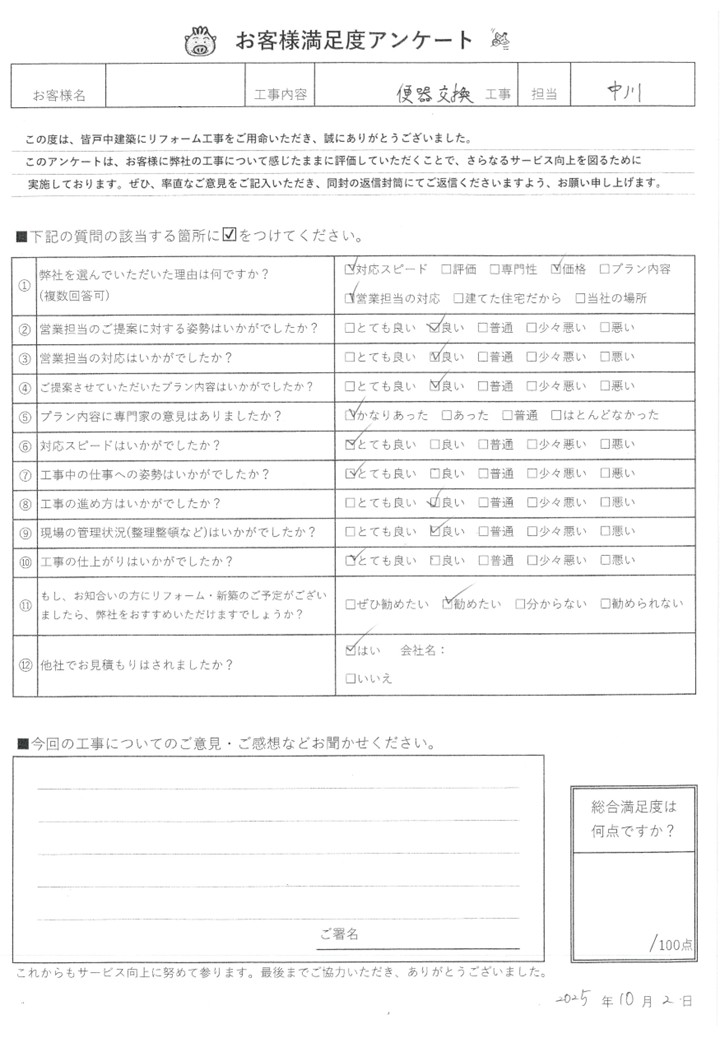 お客様満足度アンケート
お客様名 工事内容 便器交換 工事 担当 中川
この度は、皆戸中建築にリフォーム工事をご用命いただき、誠にありがとうございました。
このアンケートは、お客様に弊社の工事について感じたままに評価していただくことで、さらなるサービス向上を図るために
実施しております。ぜひ、率直なご意見をご記入いただき、同封の返信封筒にてご返信くださいますよう、お願い申し上げます。
■下記の質問の該当する箇所に☑をつけてください。
① 弊社を選んでいただいた理由は何ですか？ ☑対応スピード □評価 □専門性 ☑価格 □プラン内容
(複数回答可) ☑営業担当の対応 □建てた住宅だから □当社の場所
② 営業担当のご提案に対する姿勢はいかがでしたか？ □とても良い ☑良い □普通 □少々悪い □悪い
③ 営業担当の対応はいかがでしたか？ □とても良い ☑良い □普通 □少々悪い □悪い
④ ご提案させていただいたプラン内容はいかがでしたか？ □とても良い ☑良い □普通 □少々悪い □悪い
⑤ プラン内容に専門家の意見はありましたか？ ☑かなりあった □あった □普通 □ほとんどなかった
⑥ 対応スピードはいかがでしたか？ ☑とても良い □良い □普通 □少々悪い □悪い
⑦ 工事中の仕事への姿勢はいかがでしたか？ ☑とても良い □良い □普通 □少々悪い □悪い
⑧ 工事の進め方はいかがでしたか？ □とても良い ☑良い □普通 □少々悪い □悪い
⑨ 現場の管理状況(整理整頓など)はいかがでしたか？ □とても良い ☑良い □普通 □少々悪い □悪い
⑩ 工事の仕上がりはいかがでしたか？ ☑とても良い □良い □普通 □少々悪い □悪い
⑪ もし、お知合いの方にリフォーム・新築のご予定がござい
ましたら、弊社をおすすめいただけますでしょうか？ □ぜひ勧めたい ☑勧めたい □分からない □勧められない
⑫ 他社でお見積もりはされましたか？ ☑はい 会社名：
□いいえ
■今回の工事についてのご意見・ご感想などお聞かせください。
総合満足度は
何点ですか？
ご署名
/100点
これからもサービス向上に努めて参ります。最後までご協力いただき、ありがとうございました。
2025 年 10 月 2 日